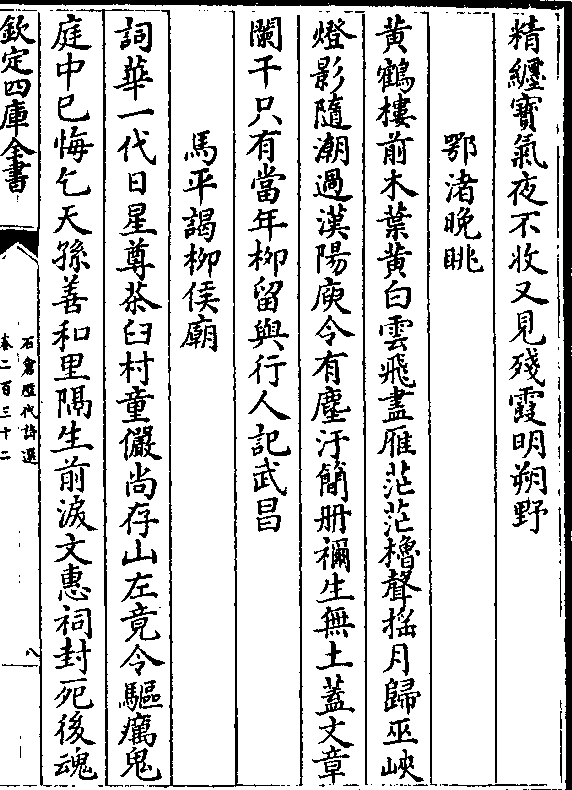 精纏寶氣夜不收又見殘霞明朔野
鄂渚晚眺
黃鶴樓前木葉黃白雲飛盡雁茫茫櫓聲搖月歸巫峽
燈影隨潮過漢陽庾令有塵汙簡册禰生無土蓋文章
闌干只有當年柳留與行人記武昌
馬平謁柳侯廟
詞華一代日星尊茶臼村童儼尚存山左竟令驅癘鬼
庭中已悔乞天孫善和里隔生前淚文惠祠封死後魂
欽定四庫全書
石倉歷代詩選
卷二百三十二
八